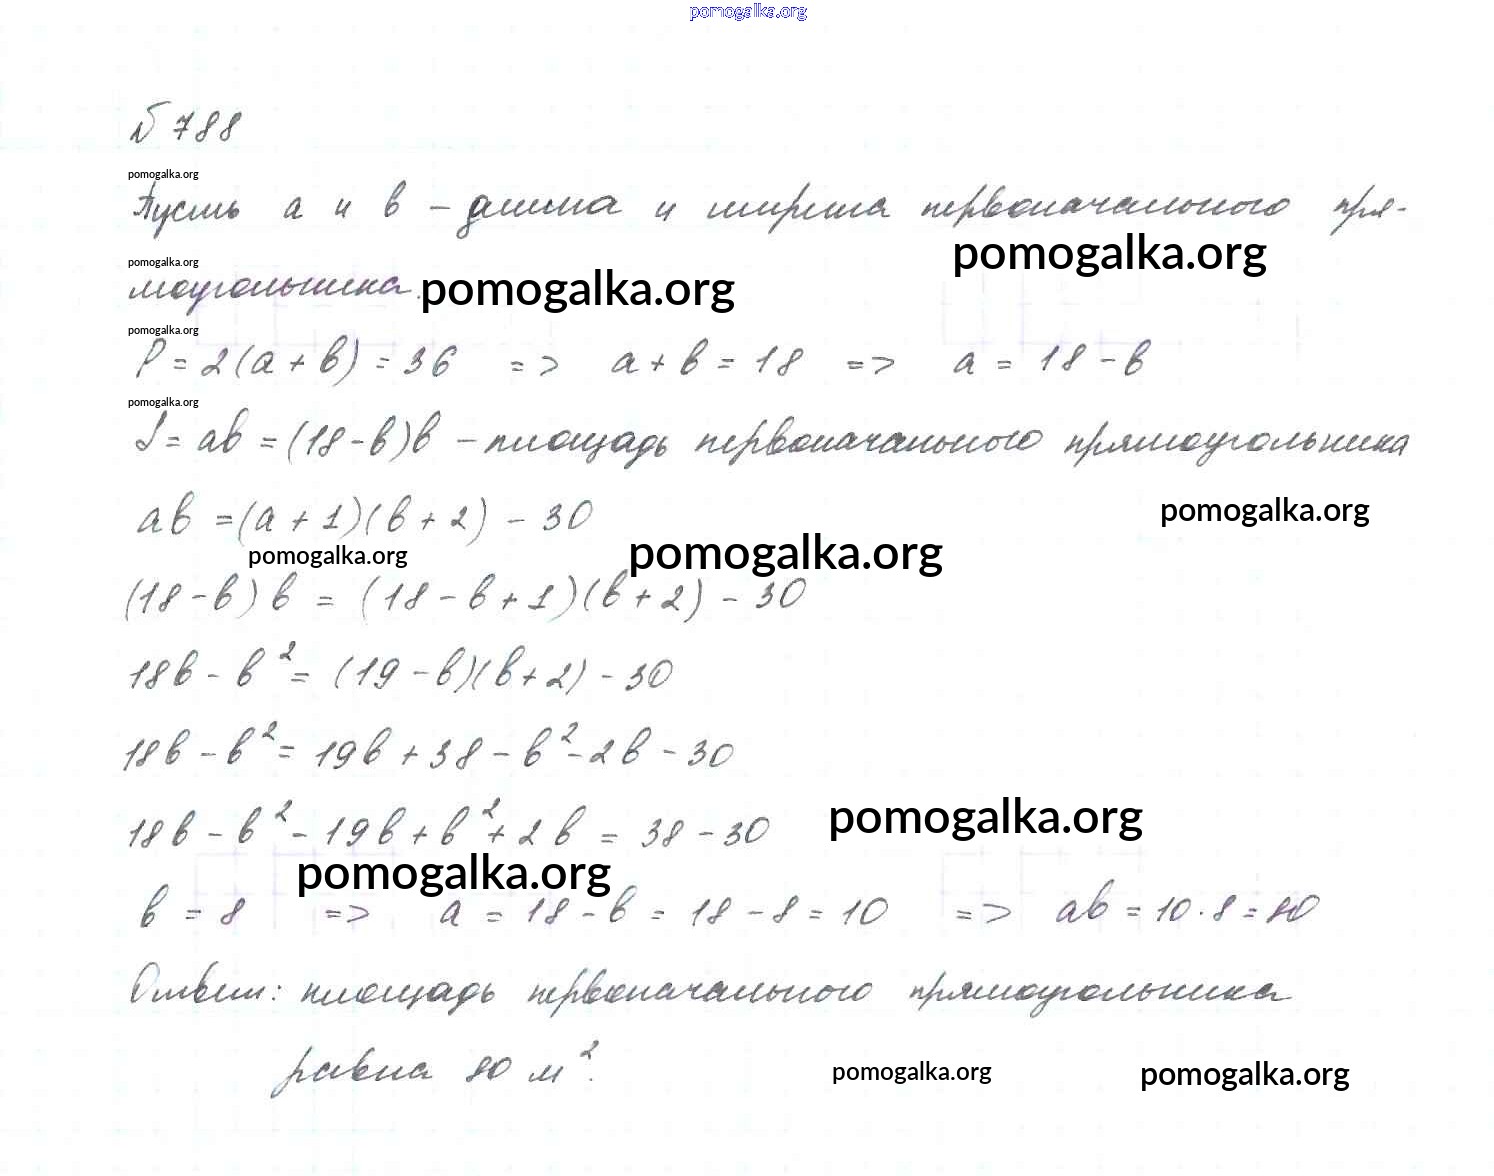 pomogalka.org
№ 788
pomogalka.org
Пусть а и в – длина и ширина первоначального пря-
pomogalka.org
pomogalka.org
моугольника. pomogalka.org
pomogalka.org
P = 2(а + в) = 36 => а + в = 18 => а = 18 - в
pomogalka.org
S = ав = (18 - в)в – площадь первоначального прямоугольника
ав = (а + 1)(в + 2) - 30
pomogalka.org
pomogalka.org
pomogalka.org
(18 - в)в = (18 - в + 1)(в + 2) - 30
18в - в² = (19 - в)(в + 2) - 30
18в - в² = 19в + 38 - в² - 2в - 30
18в - в² - 19в + в² + 2в = 38 - 30
pomogalka.org
pomogalka.org
в = 8 => а = 18 - в = 18 - 8 = 10 => ав = 10 · 8 = 80
Ответ: площадь первоначального прямоугольника
равна 80 м².
pomogalka.org
pomogalka.org